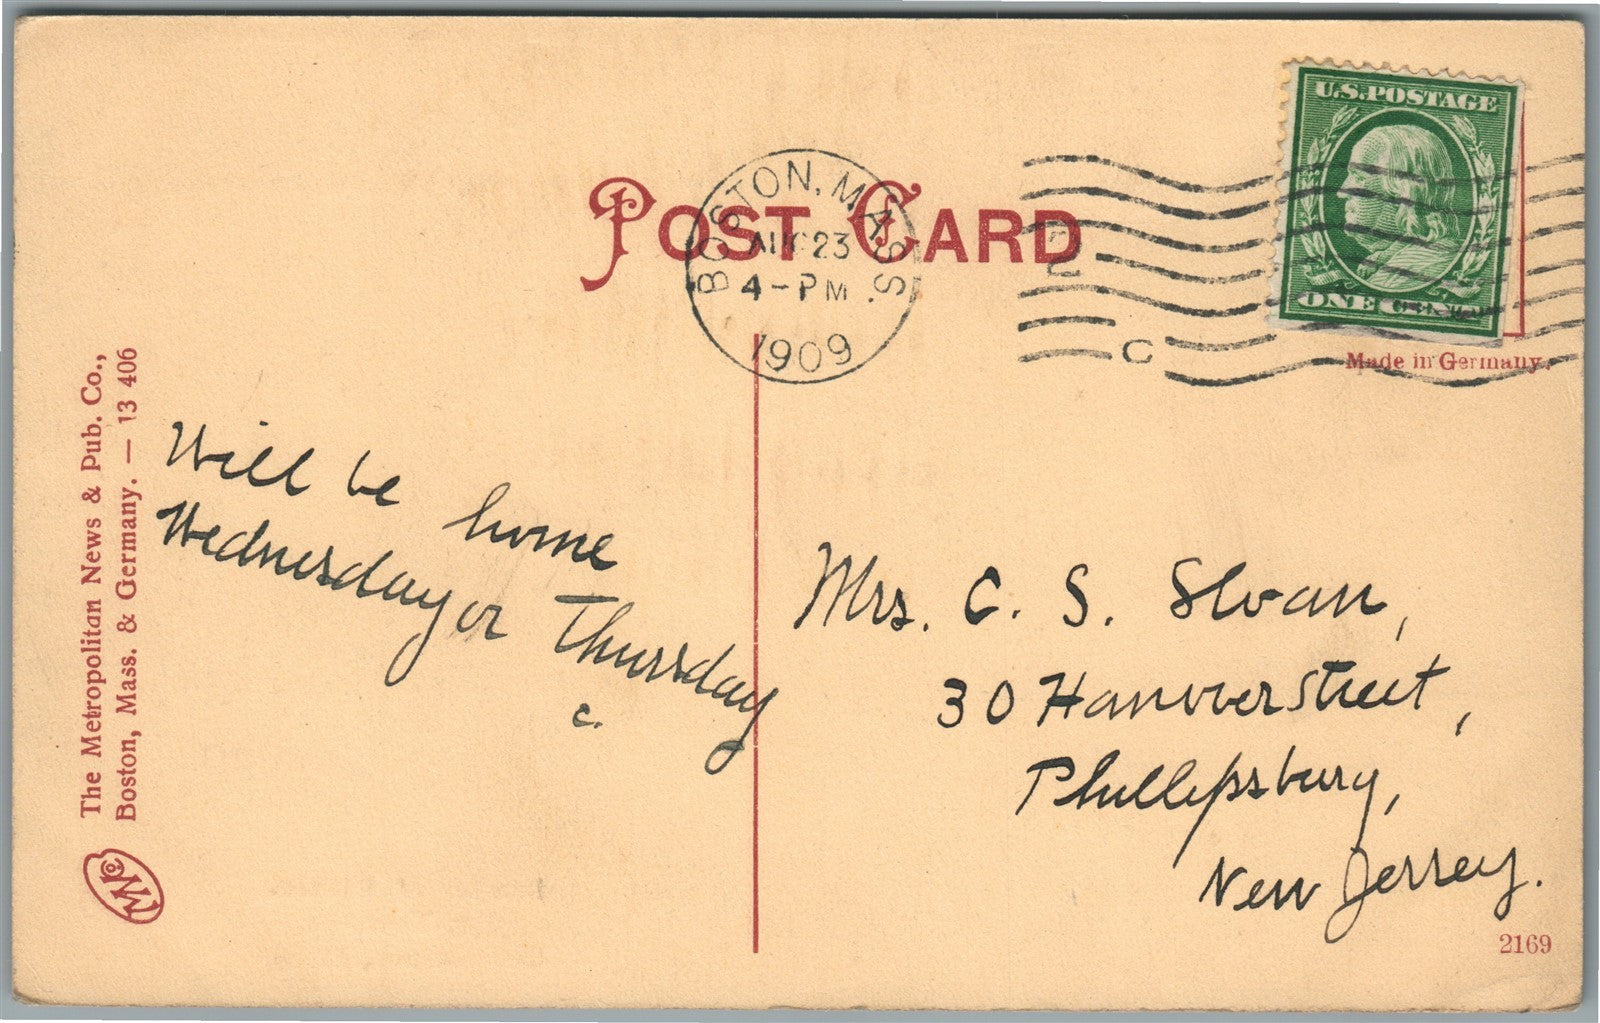 POST CARD
BOSTON, MASS.
AUG 23
4-PM
1909
C
U.S. POSTAGE
ONE CENT
Made in Germany.
The Metropolitan News & Pub. Co.,
Boston, Mass. & Germany. — 13 406
Will be home
Wednesday or Thursday
C.
Mrs. C. S. Sloan,
30 Hanover Street,
Phillipsburg,
New Jersey.
2169